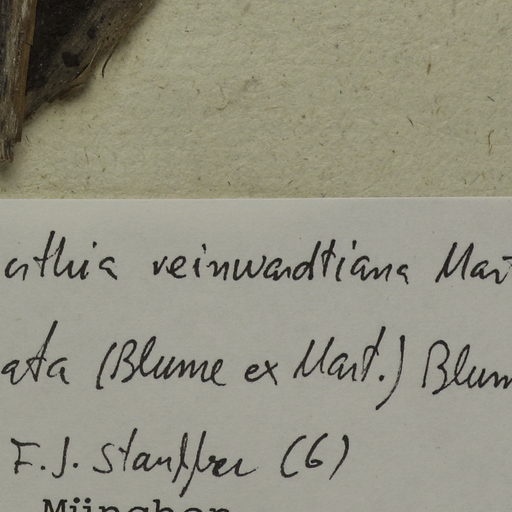 reinwardtiana Mart
ata (Blume ex Mart.) Blum
F. J. Stauffer (6)
München